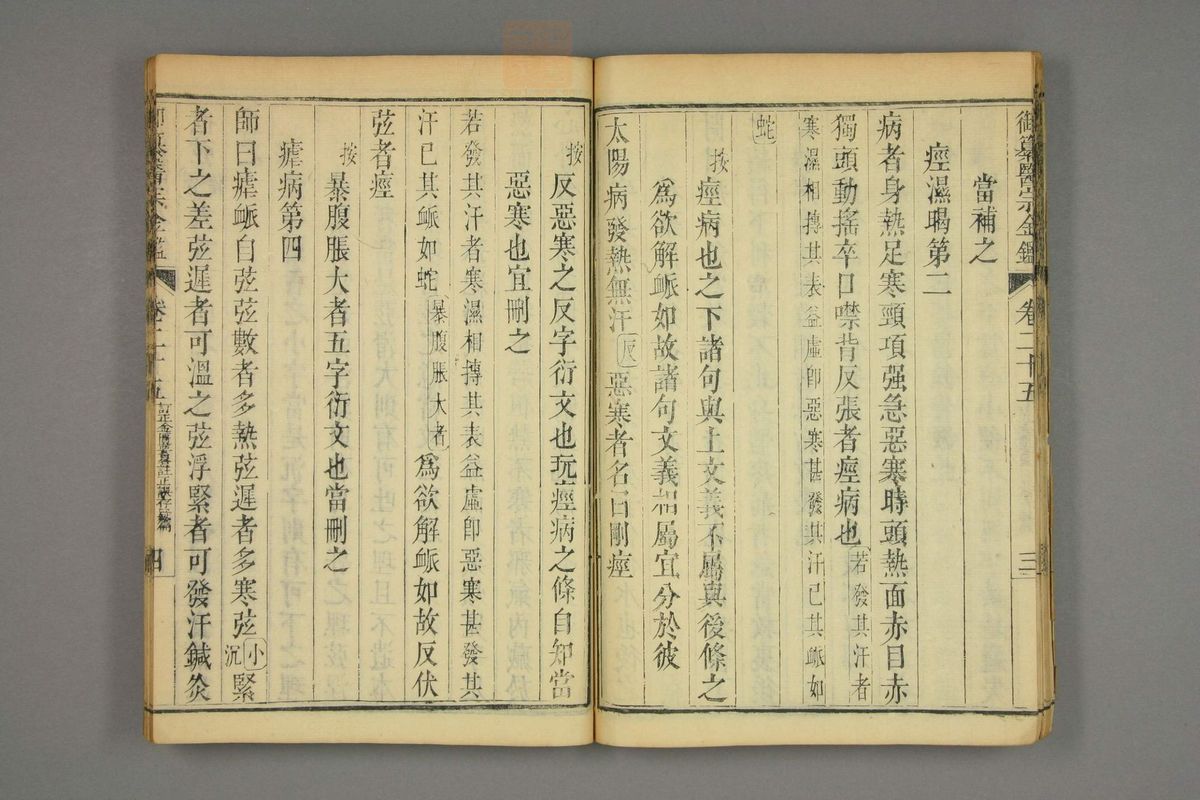 御纂醫宗金鑑 卷二十五 三
當補之
痙濕暍第二
病者身熱足寒頸項强急惡寒時頭熱面赤目赤
獨頭動搖卒口噤背反張者痙病也若發其汗者
寒濕相摶其表益虛卽惡寒甚發其汗已其脈如
蛇
按痙病也之下諸句與上文義不屬與後條之
爲欲解脈如故諸句文義相屬宜分於彼
太陽病發熱無汗反惡寒者名曰剛痙
按反惡寒之反字衍文也玩痙病之條自知當
惡寒也宜刪之
若發其汗者寒濕相摶其表益虛卽惡寒甚發其
汗已其脈如蛇暴腹脹大者爲欲解脈如故反伏
弦者痙
按暴腹脹大者五字衍文也當刪之
瘧病第四
師曰瘧脈自弦弦數者多熱弦遲者多寒弦小沉緊
者下之差弦遲者可溫之弦浮緊者可發汗鍼灸
御纂醫宗金鑑 卷二十五 四